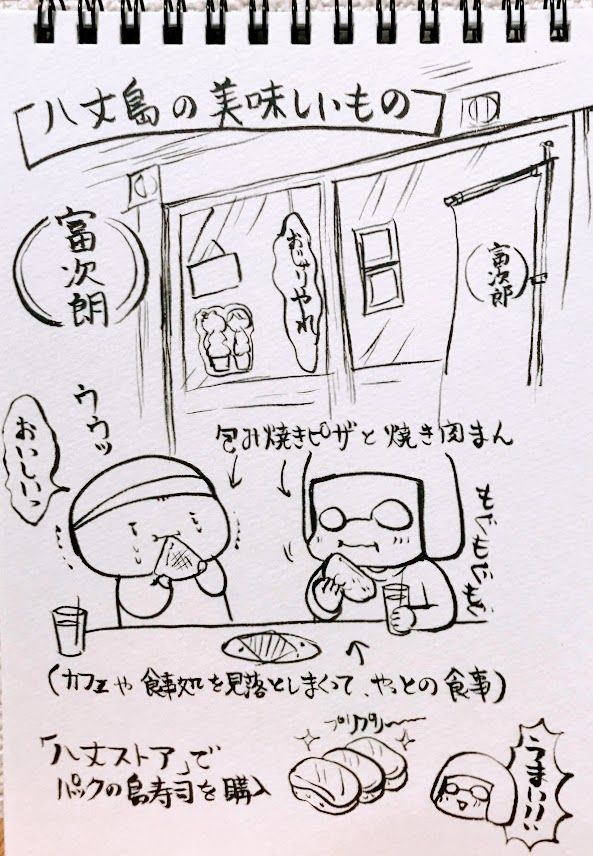 八丈島の美味しいもの
富次朗
おじゃりやれ
富次郎
ウウッ
おいしいっ
包み焼きピザと焼き肉まん
もぐもぐもぐ
(カフェや食事処を見落としまくって、やっとの食事)
プリプリ〜
「八丈ストア」で
パックの島寿司を購入
うまい!!!